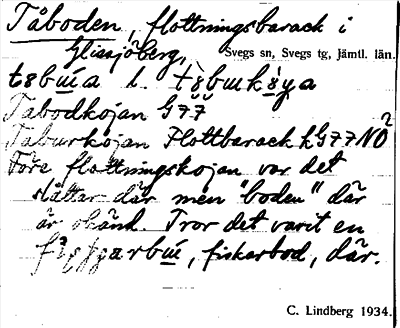 Tåboden, flottningsbarack i
Glissjöberg, Svegs sn, Svegs tg, Jämtl. län.
Tabodkojan G77
Taburkojan Flottbarack kG77NO
Före flottningskojan var det
slåttar där men "boden" där
är okänd. Tror det varit en
fiskarbod, där.
C. Lindberg 1934.